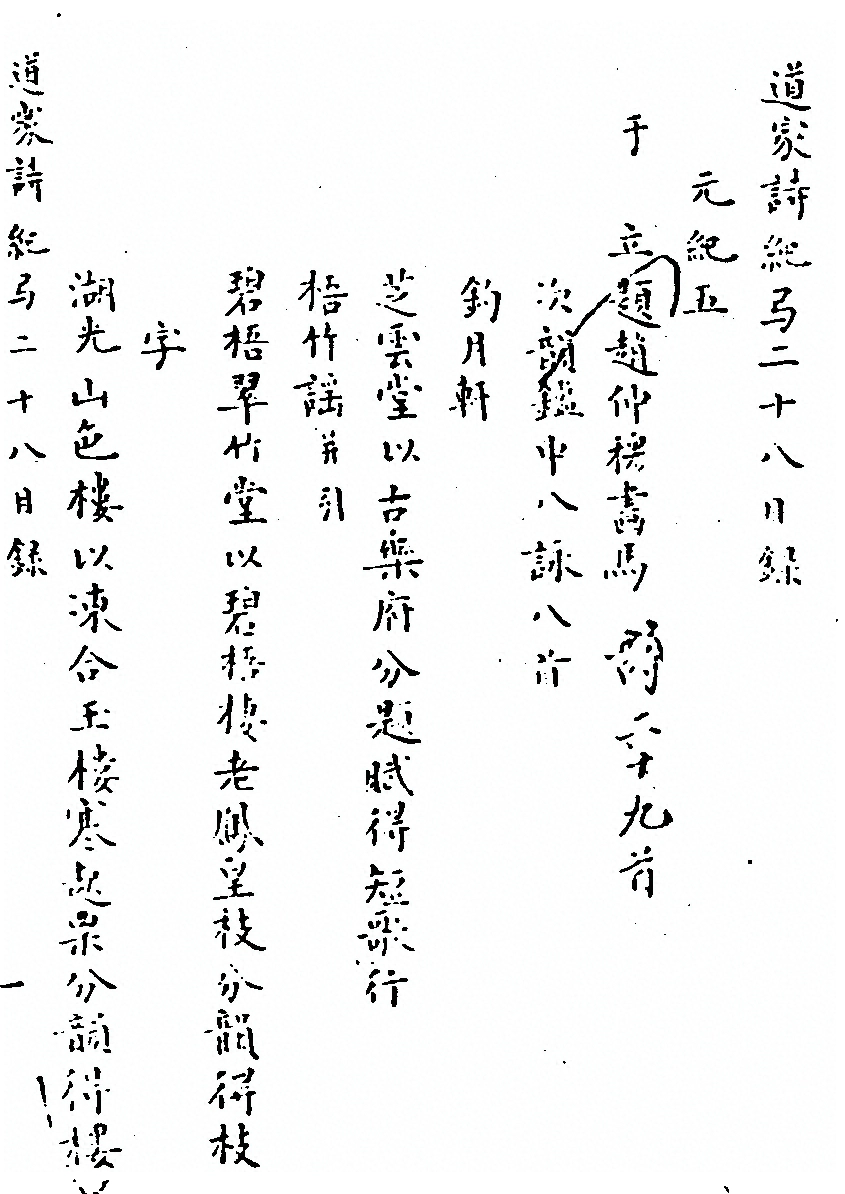 道家詩紀弓二十八目錄
元紀五
于立題趙仲穆畫馬 九首
次韻鑑中八詠八首
釣月軒
芝雲堂以古樂府分題賦得短歌行
梧竹謡并引
碧梧翠竹堂以碧梧棲老鳳皇枝分韻得枝
字
湖光山色樓以凍合玉樓寒起粟分韻得樓
道家詩紀弓二十八目錄
一